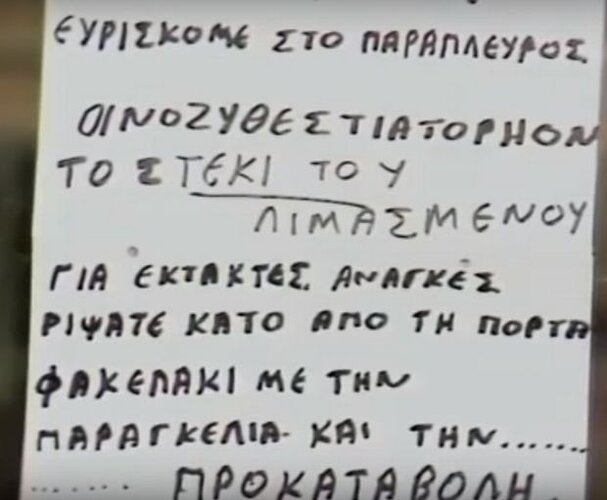 ΕΥΡΙΣΚΟΜΕ ΣΤΟ ΠΑΡΑΠΛΕΥΡΟΣ
ΟΙΝΟΖΥΘΕΣΤΙΑΤΟΡΗΟΝ
ΤΟ ΣΤΕΚΙ ΤΟΥ
ΛΙΜΑΣΜΕΝΟΥ
ΓΙΑ ΕΚΤΑΚΤΕΣ ΑΝΑΓΚΕΣ
ΡΙΨΑΤΕ ΚΑΤΟ ΑΠΟ ΤΗ ΠΟΡΤΑ
ΦΑΚΕΛΑΚΙ ΜΕ ΤΗΝ
ΠΑΡΑΓΚΕΛΙΑ ΚΑΙ ΤΗΝ.......
....... ΠΡΟΚΑΤΑΒΟΛΗ